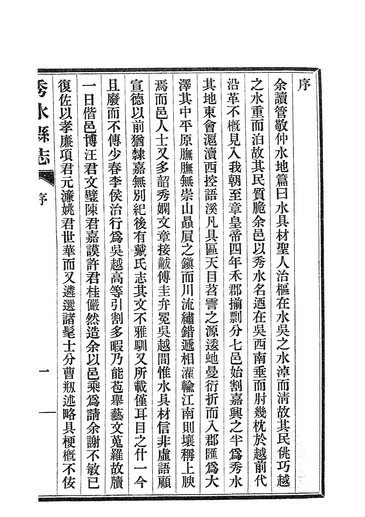 序
余讀管敬仲水地篇曰水具材聖人治樞在水吳之水淖而清故其民佻巧越
之水重而泊故其民質脆余邑以秀水名迺在吳西南垂而肘幾枕於越前代
沿革不槪見入我朝至章皇帝四年禾郡揃剽分七邑始割嘉興之半爲秀水
其地東會滬瀆西控語溪凡具區天目苕霅之源逶虵曼衍折而入郡匯爲大
澤其中平原膴膴無崇山贔屓之鎭而川流繡錯遞相灌輸江南則壤稱上腴
焉而邑人士又多韶秀嫺文章接韍傅圭弁冕吳越間惟水具材信非虛語顧
宣德以前猶隸嘉無別紀後有戴氏志其文不雅馴又所載僅耳目之什一今
且廢而不傳少春李侯治行爲吳越高等引割多暇乃能苞舉藝文蒐羅故牘
一日偕邑博汪君文璧陳君嘉謨許君桂儼然造余以邑乘爲請余謝不敏已
復佐以孝廉項君元濂姚君世華而又遴選諸髦士分曹觚述略具梗槪不佞
秀水縣志 序 一